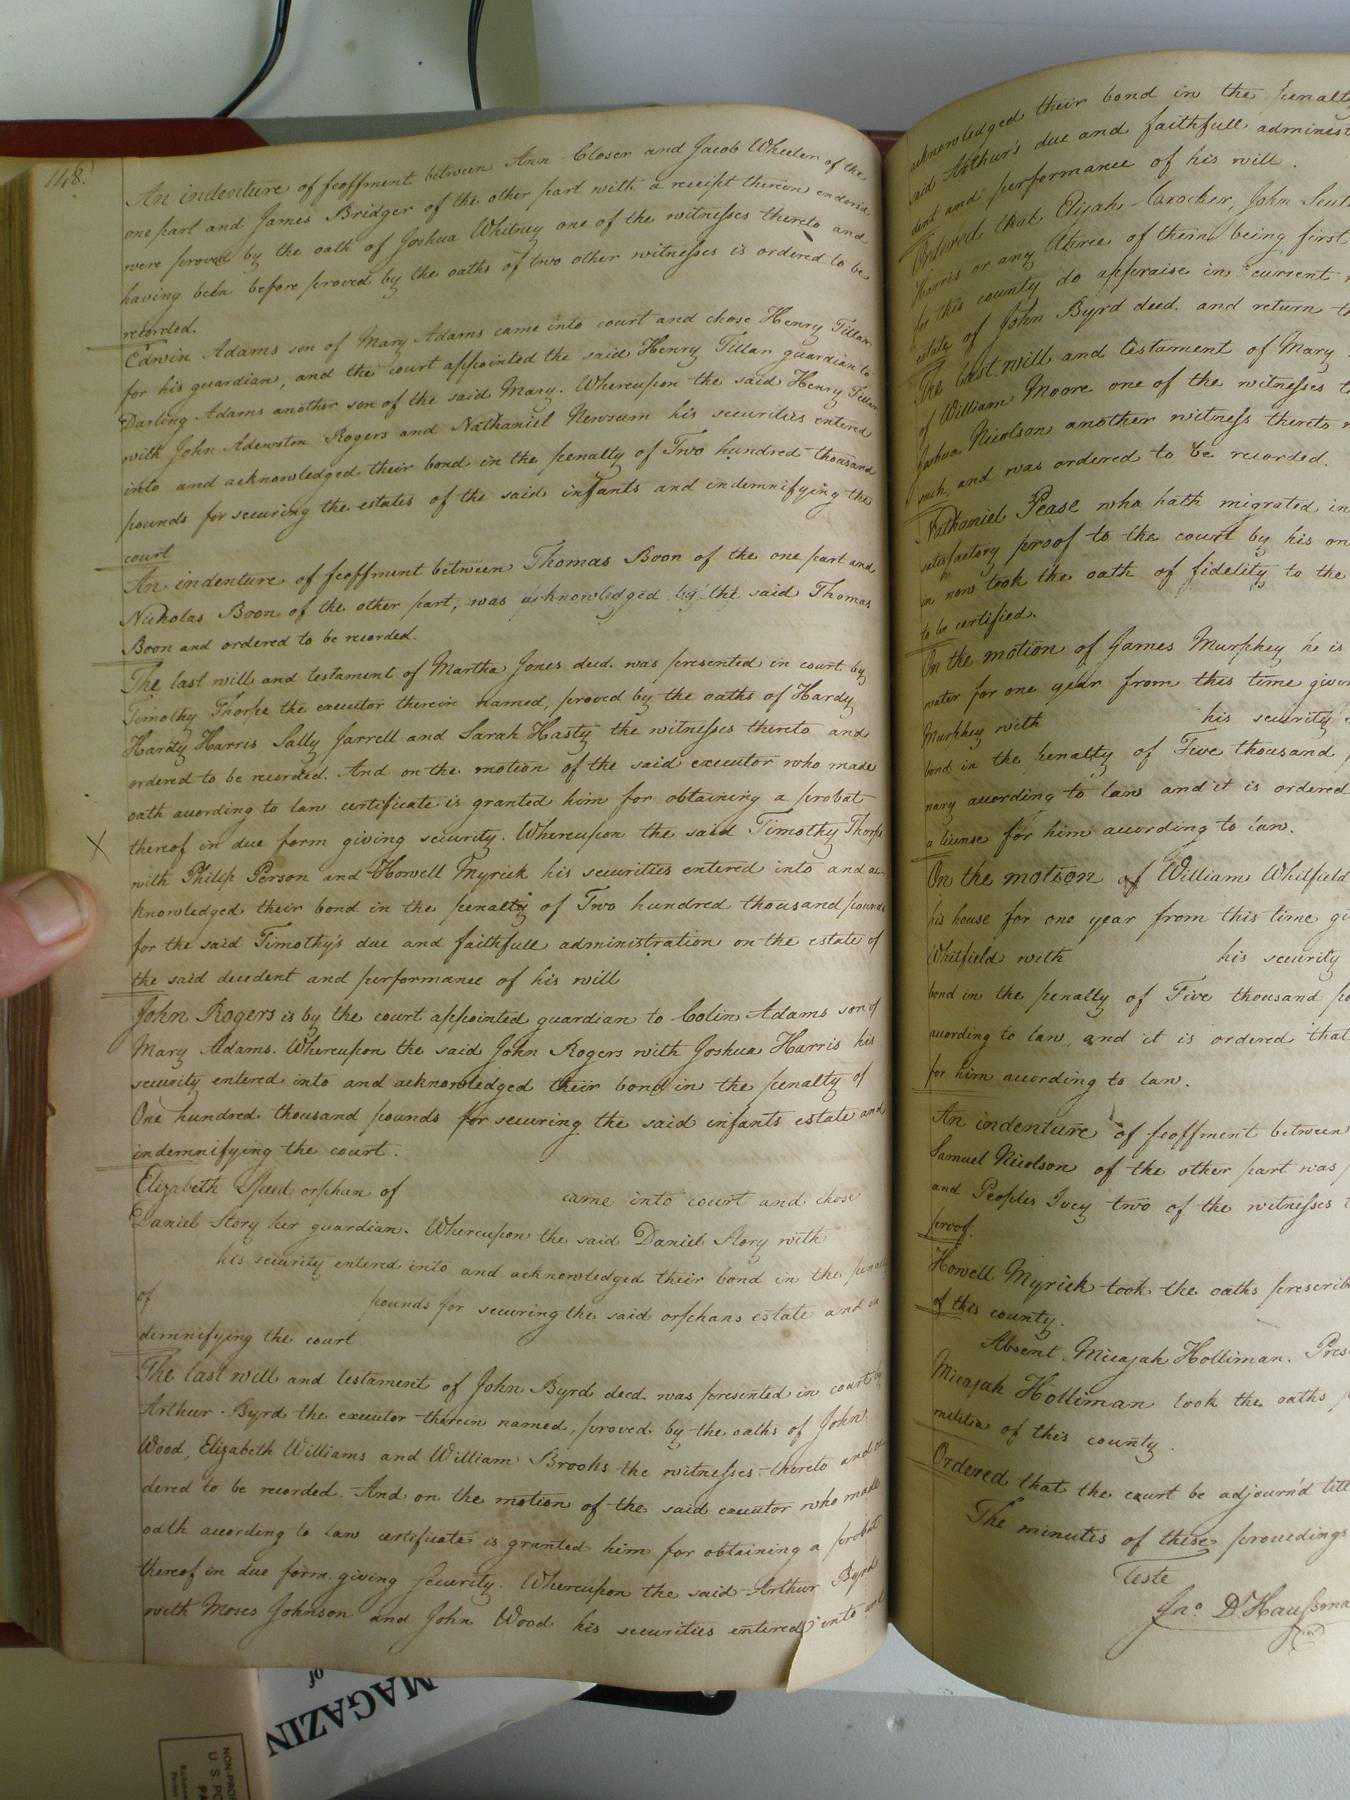 148.
An indenture of feoffment between Ann Closer and Jacob Wheeler of the
one part and James Bridger of the other part with a receipt thereon endorsed
were proved by the oath of Joshua Whitney one of the witnesses thereto and
having been before proved by the oaths of two other witnesses is ordered to be
recorded.
Edwin Adams son of Mary Adams came into court and chose Henry Tillar
for his guardian, and the court appointed the said Henry Tillar guardian to
Darling Adams another son of the said Mary. Whereupon the said Henry Tillar
with John Adenston Rogers and Nathaniel Newsum his securities entered
into and acknowledged their bond in the penalty of Two hundred thousand
pounds for securing the estates of the said infants and indemnifying the
court
An indenture of feoffment between Thomas Boon of the one part and
Nicholas Boon of the other part, was acknowledged by the said Thomas
Boon and ordered to be recorded.
The last will and testament of Martha Jones decd. was presented in court by
Timothy Thorpe the executor therein named, proved by the oaths of Hardy
Hardy Harris Sally Jarrell and Sarah Hasty the witnesses thereto and
ordered to be recorded. And on the motion of the said executor who made
oath according to law certificate is granted him for obtaining a probat
thereof in due form giving security. Whereupon the said Timothy Thorpe
X
with Philip Person and Howell Myrick his securities entered into and ac
knowledged their bond in the penalty of Two hundred thousand pounds
for the said Timothy's due and faithfull administration on the estate of
the said decedent and performance of his will
John Rogers is by the court appointed guardian to Colin Adams son of
Mary Adams. Whereupon the said John Rogers with Joshua Harris his
security entered into and acknowledged their bond in the penalty of
One hundred thousand pounds for securing the said infants estate and
indemnifying the court.
Elizabeth Speed orphan of came into court and chose
Daniel Story her guardian. Whereupon the said Daniel Story with
his security entered into and acknowledged their bond in the penalty
of pounds for securing the said orphans estate and in
demnifying the court
The last will and testament of John Byrd decd. was presented in court by
Arthur Byrd the executor therein named, proved by the oaths of John
Wood, Elizabeth Williams and William Brooks the witnesses thereto and or
dered to be recorded. And on the motion of the said executor who made
oath according to law certificate is granted him for obtaining a probat
thereof in due form giving security. Whereupon the said Arthur Byrd
with Moses Johnson and John Wood his securities entered into and
acknowledged their bond in the penalty
said Arthur's due and faithfull administ
dent and performance of his will.
Ordered that Elijah Crocker, John
Harris or any three of them being first
for this county do appraise in current
estate of John Byrd decd. and return
The last will and testament of Mary
of William Moore one of the witnesses
Joshua Nicolson another witness thereto
such, and was ordered to be recorded.
Nathaniel Pease who hath migrated in
satisfactory proof to the court by his
in now took the oath of fidelity to the
to be certified.
On the motion of James Murphey he is
for one year from this time
Murphey with his security
bond in the penalty of Five thousand
nary according to law and it is ordered
a license for him according to law.
On the motion of William Whitfield
his house for one year from this time
Whitfield with his security
bond in the penalty of Five thousand
according to law, and it is ordered that
for him according to law.
An indenture of feoffment between
Samuel Nicolson of the other part was
and Peoples Ivey two of the witnesses
proof.
Howell Myrick took the oaths prescribe
of this county.
Absent. Micajah Holliman. Pres
Micajah Holliman took the oaths
militia of this county.
Ordered that the court be adjourn'd till
The minutes of these proceedings
Teste
Jno. D'Haussona
MAGAZIN
of
NON-PRO
U.S. PO
PA